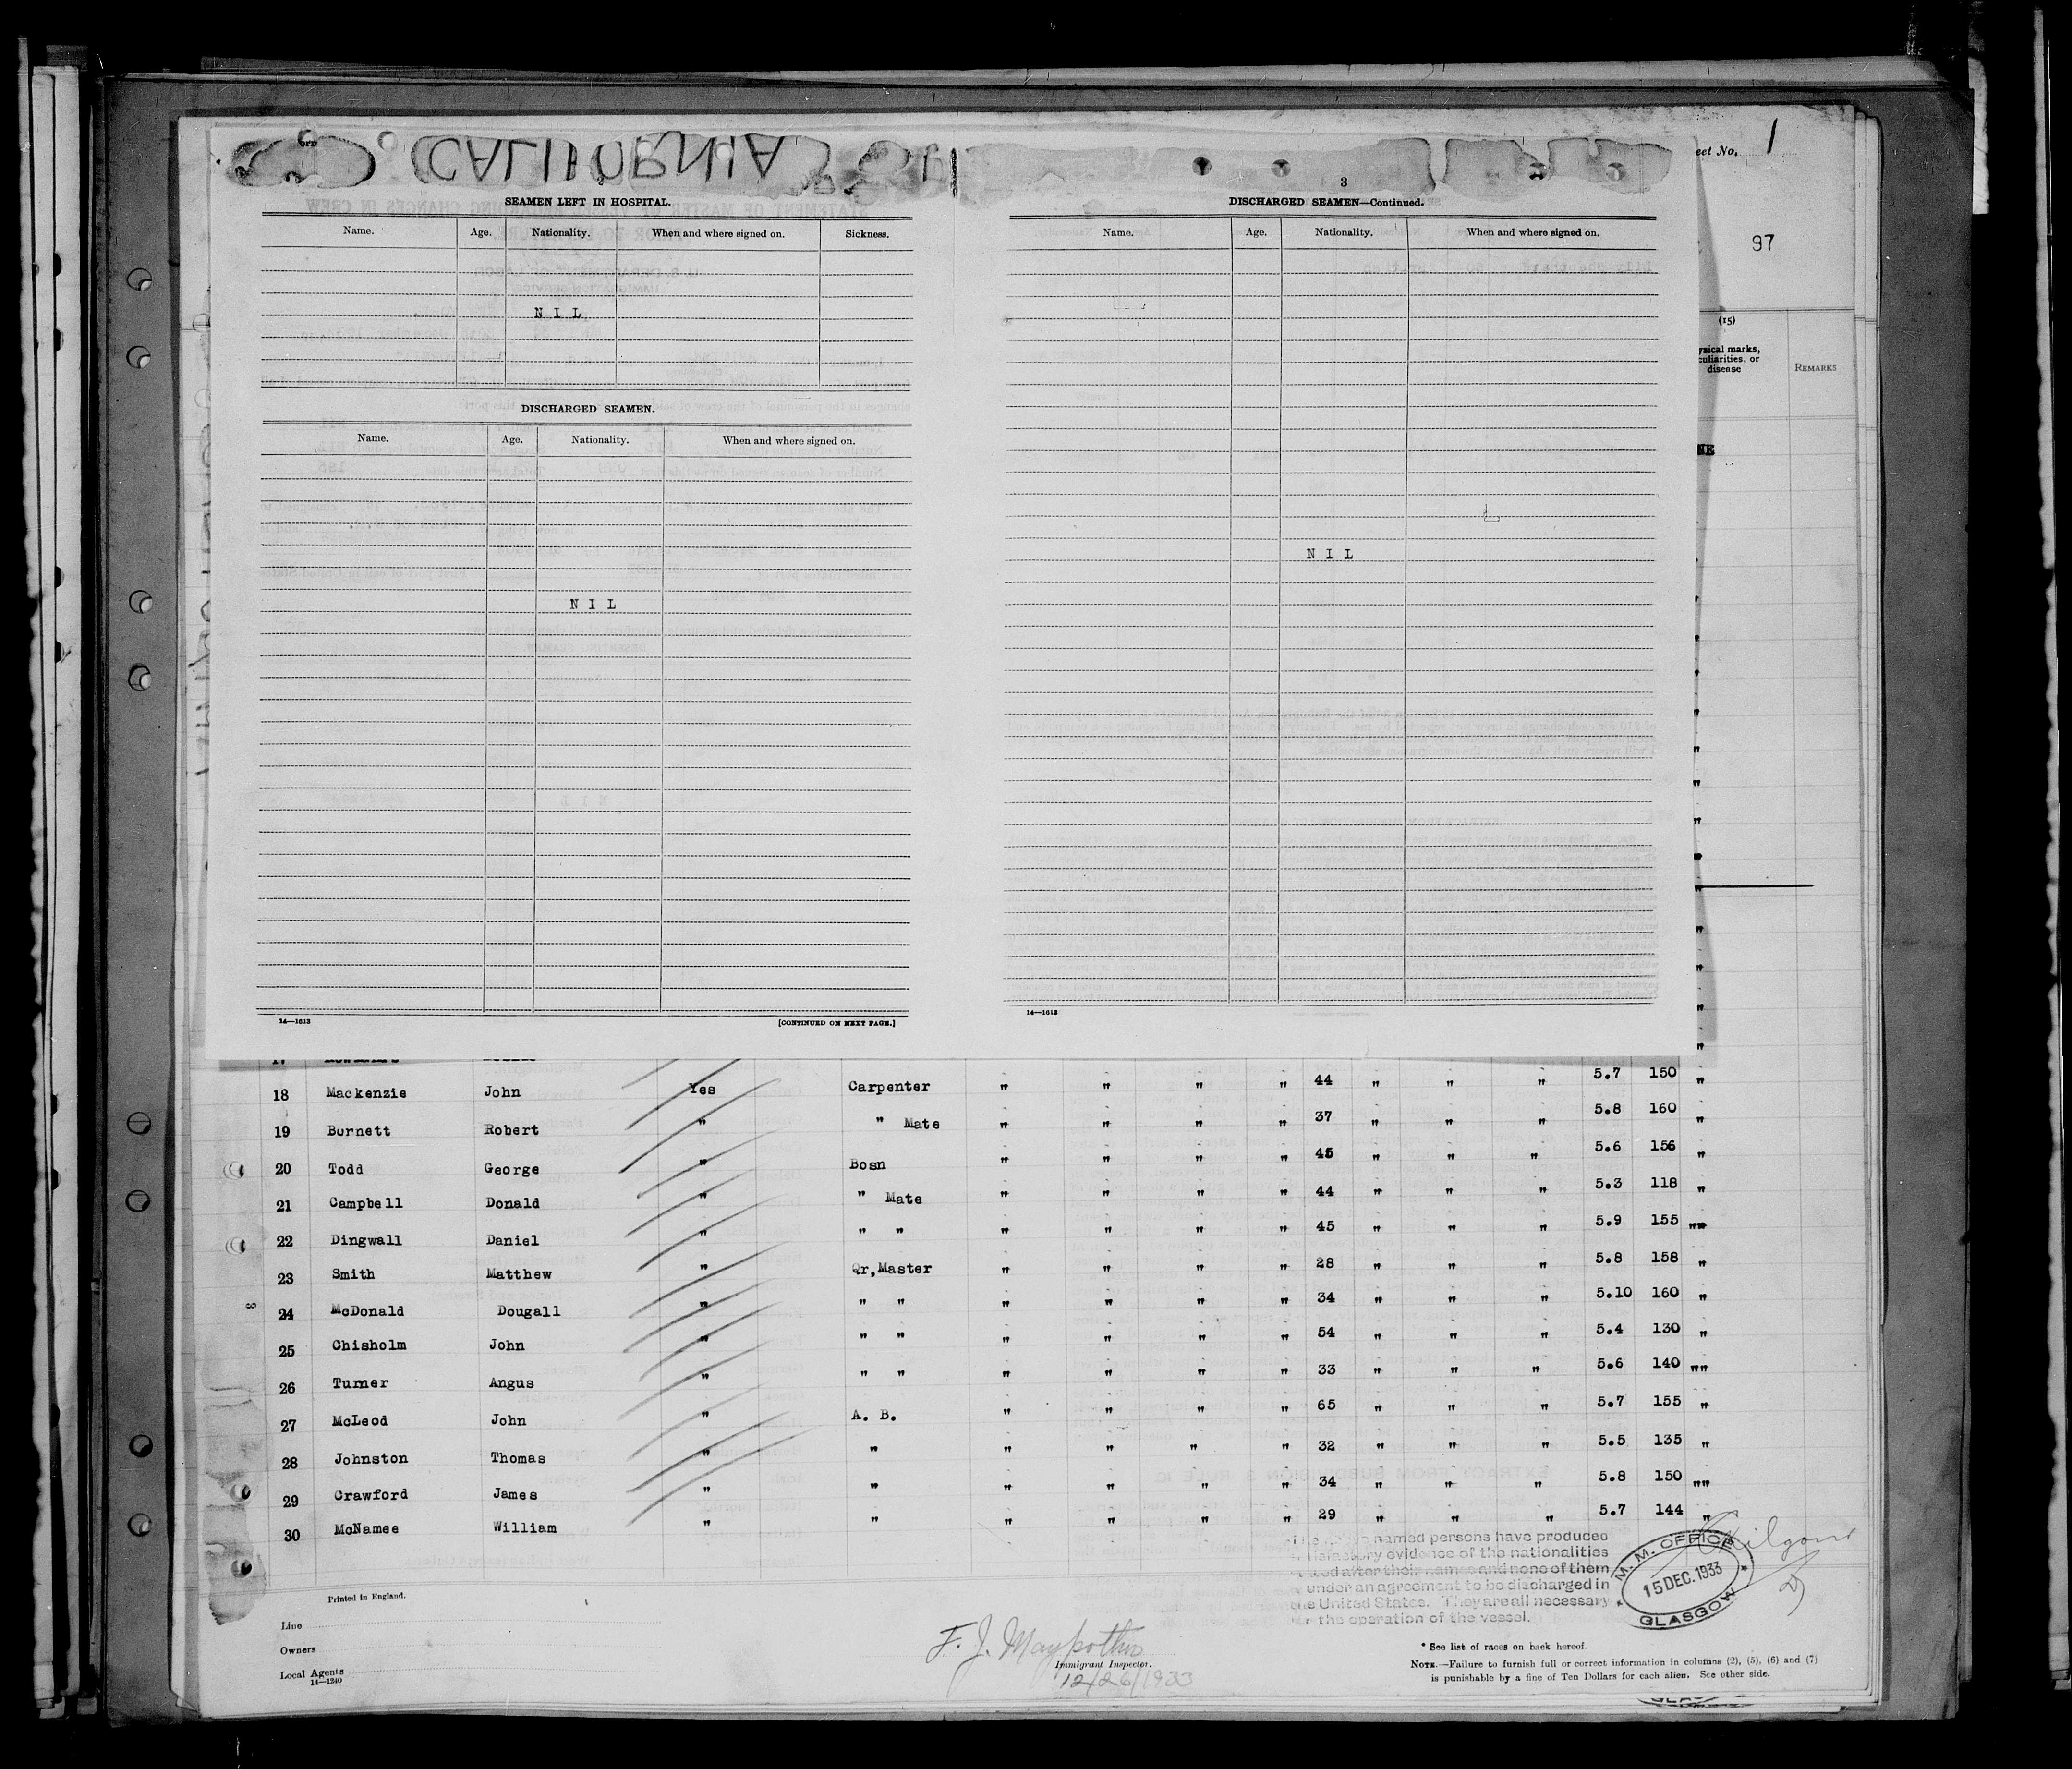 CALIFORNIA
eet No. 1
97
3
SEAMEN LEFT IN HOSPITAL.
Name. Age. Nationality. When and where signed on. Sickness.
N I L
DISCHARGED SEAMEN.
Name. Age. Nationality. When and where signed on.
N I L
14—1613 [CONTINUED ON NEXT PAGE.]
DISCHARGED SEAMEN—Continued.
Name. Age. Nationality. When and where signed on.
N I L
14—1613
(15)
ysical marks,
culiarities, or
disease
REMARKS
18 Mackenzie John Yes Carpenter " " " " 44 " " " 5.7 150 "
19 Burnett Robert " " Mate " " " " 37 " " " 5.8 160 "
20 Todd George " Bosn " " " " 45 " " " 5.6 156 "
21 Campbell Donald " " Mate " " " " 44 " " " 5.3 118 "
22 Dingwall Daniel " " " " " " " 45 " " " 5.9 155 ""
23 Smith Matthew " Qr,Master " " " " 28 " " " 5.8 158 "
24 McDonald Dougall " " " " " " " 34 " " " 5.10 160 "
25 Chisholm John " " " " " " " 54 " " " 5.4 130 "
26 Turner Angus " " " " " " " 33 " " " 5.6 140 ""
27 McLeod John " A. B. " " " " 65 " " " 5.7 155 "
28 Johnston Thomas " " " " " " 32 " " " 5.5 135 "
29 Crawford James " " " " " " 34 " " " 5.8 150 ""
30 McNamee William " " " " " " 29 " " " 5.7 144 "
named persons have produced
evidence of the nationalities
after their names and none of them
under an agreement to be discharged in
United States. They are all necessary
the operation of the vessel.
M. M. OFFICE
15 DEC. 1933
GLASGOW
Printed in England.
Line
Owners
Local Agents
14—1240
F. J.
Immigrant Inspector.
12/26/1933
* See list of races on back hereof.
NOTE.—Failure to furnish full or correct information in columns (2), (5), (6) and (7)
is punishable by a fine of Ten Dollars for each alien. See other side.